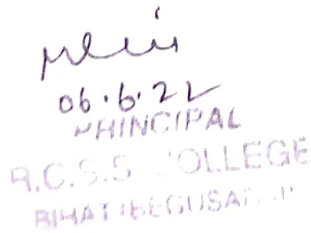 06.6.22
PRINCIPAL
R.C.S.S. COLLEGE
BIHAT (BEGUSARAI)